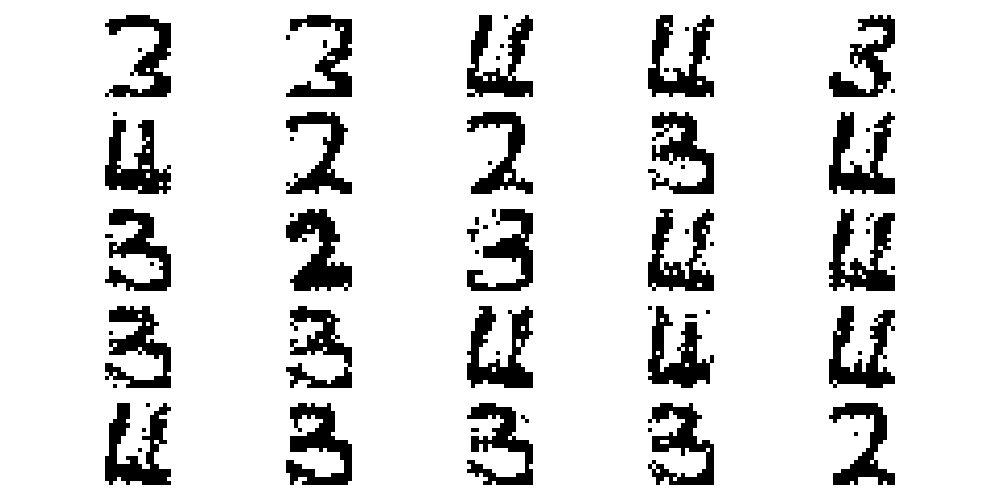 3 3 4 4 3
4 2 2 3 4
3 2 3 4 4
3 3 4 4 4
4 3 3 3 2